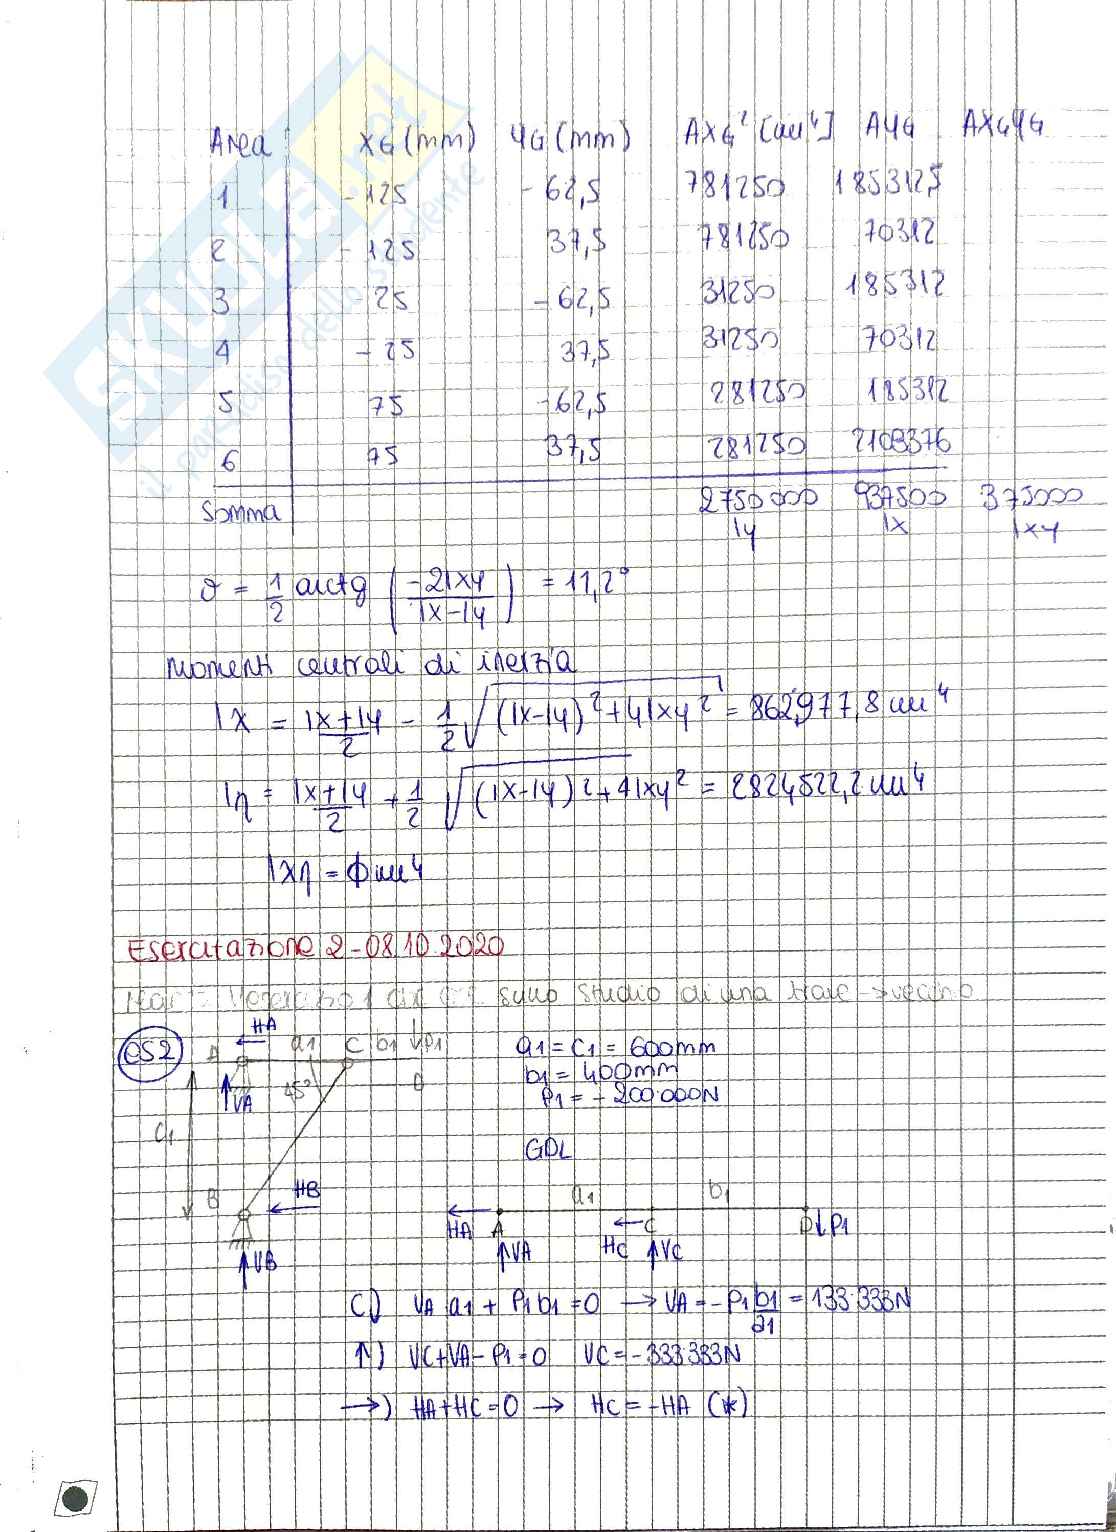 Area XG (mm) YG (mm) AXG² [mm⁴] AYG AXGYG
1 -125 -62,5 781250 1853125
2 -125 37,5 781250 70312
3 -25 -62,5 31250 185312
4 -25 37,5 31250 70312
5 75 -62,5 281250 185312
6 75 37,5 281250 2109376
Somma 2750000 937500 375000
Iy Ix Ixy
ϑ = 1/2 arctg (-2Ixy / Ix-Iy) = 11,2°
Momenti centrali di inerzia
Ix = Ix+Iy/2 - 1/2 √(Ix-Iy)²+4Ixy² = 862977,8 mm⁴
Iη = Ix+Iy/2 + 1/2 √(Ix-Iy)²+4Ixy² = 2824522,2 mm⁴
Ixη = ϕ mm⁴
Esercitazione 2 - 08.10.2020
sullo studio di una trave →
es 2
HA
A a1 C b1 ↓P1
45°
VA
C1
B HB
VB
a1 = c1 = 600mm
b1 = 400mm
P1 = - 200.000N
GDL
a1 b1
HA A VA HC C VC D ↓P1
C) VA a1 + P1 b1 = 0 → VA = - P1 b1/a1 = 133.333N
↑) VC+VA-P1=0 VC=-333.333N
→) HA+HC=0 → HC=-HA (*)
SKUOLA.net
il paradiso dello studente